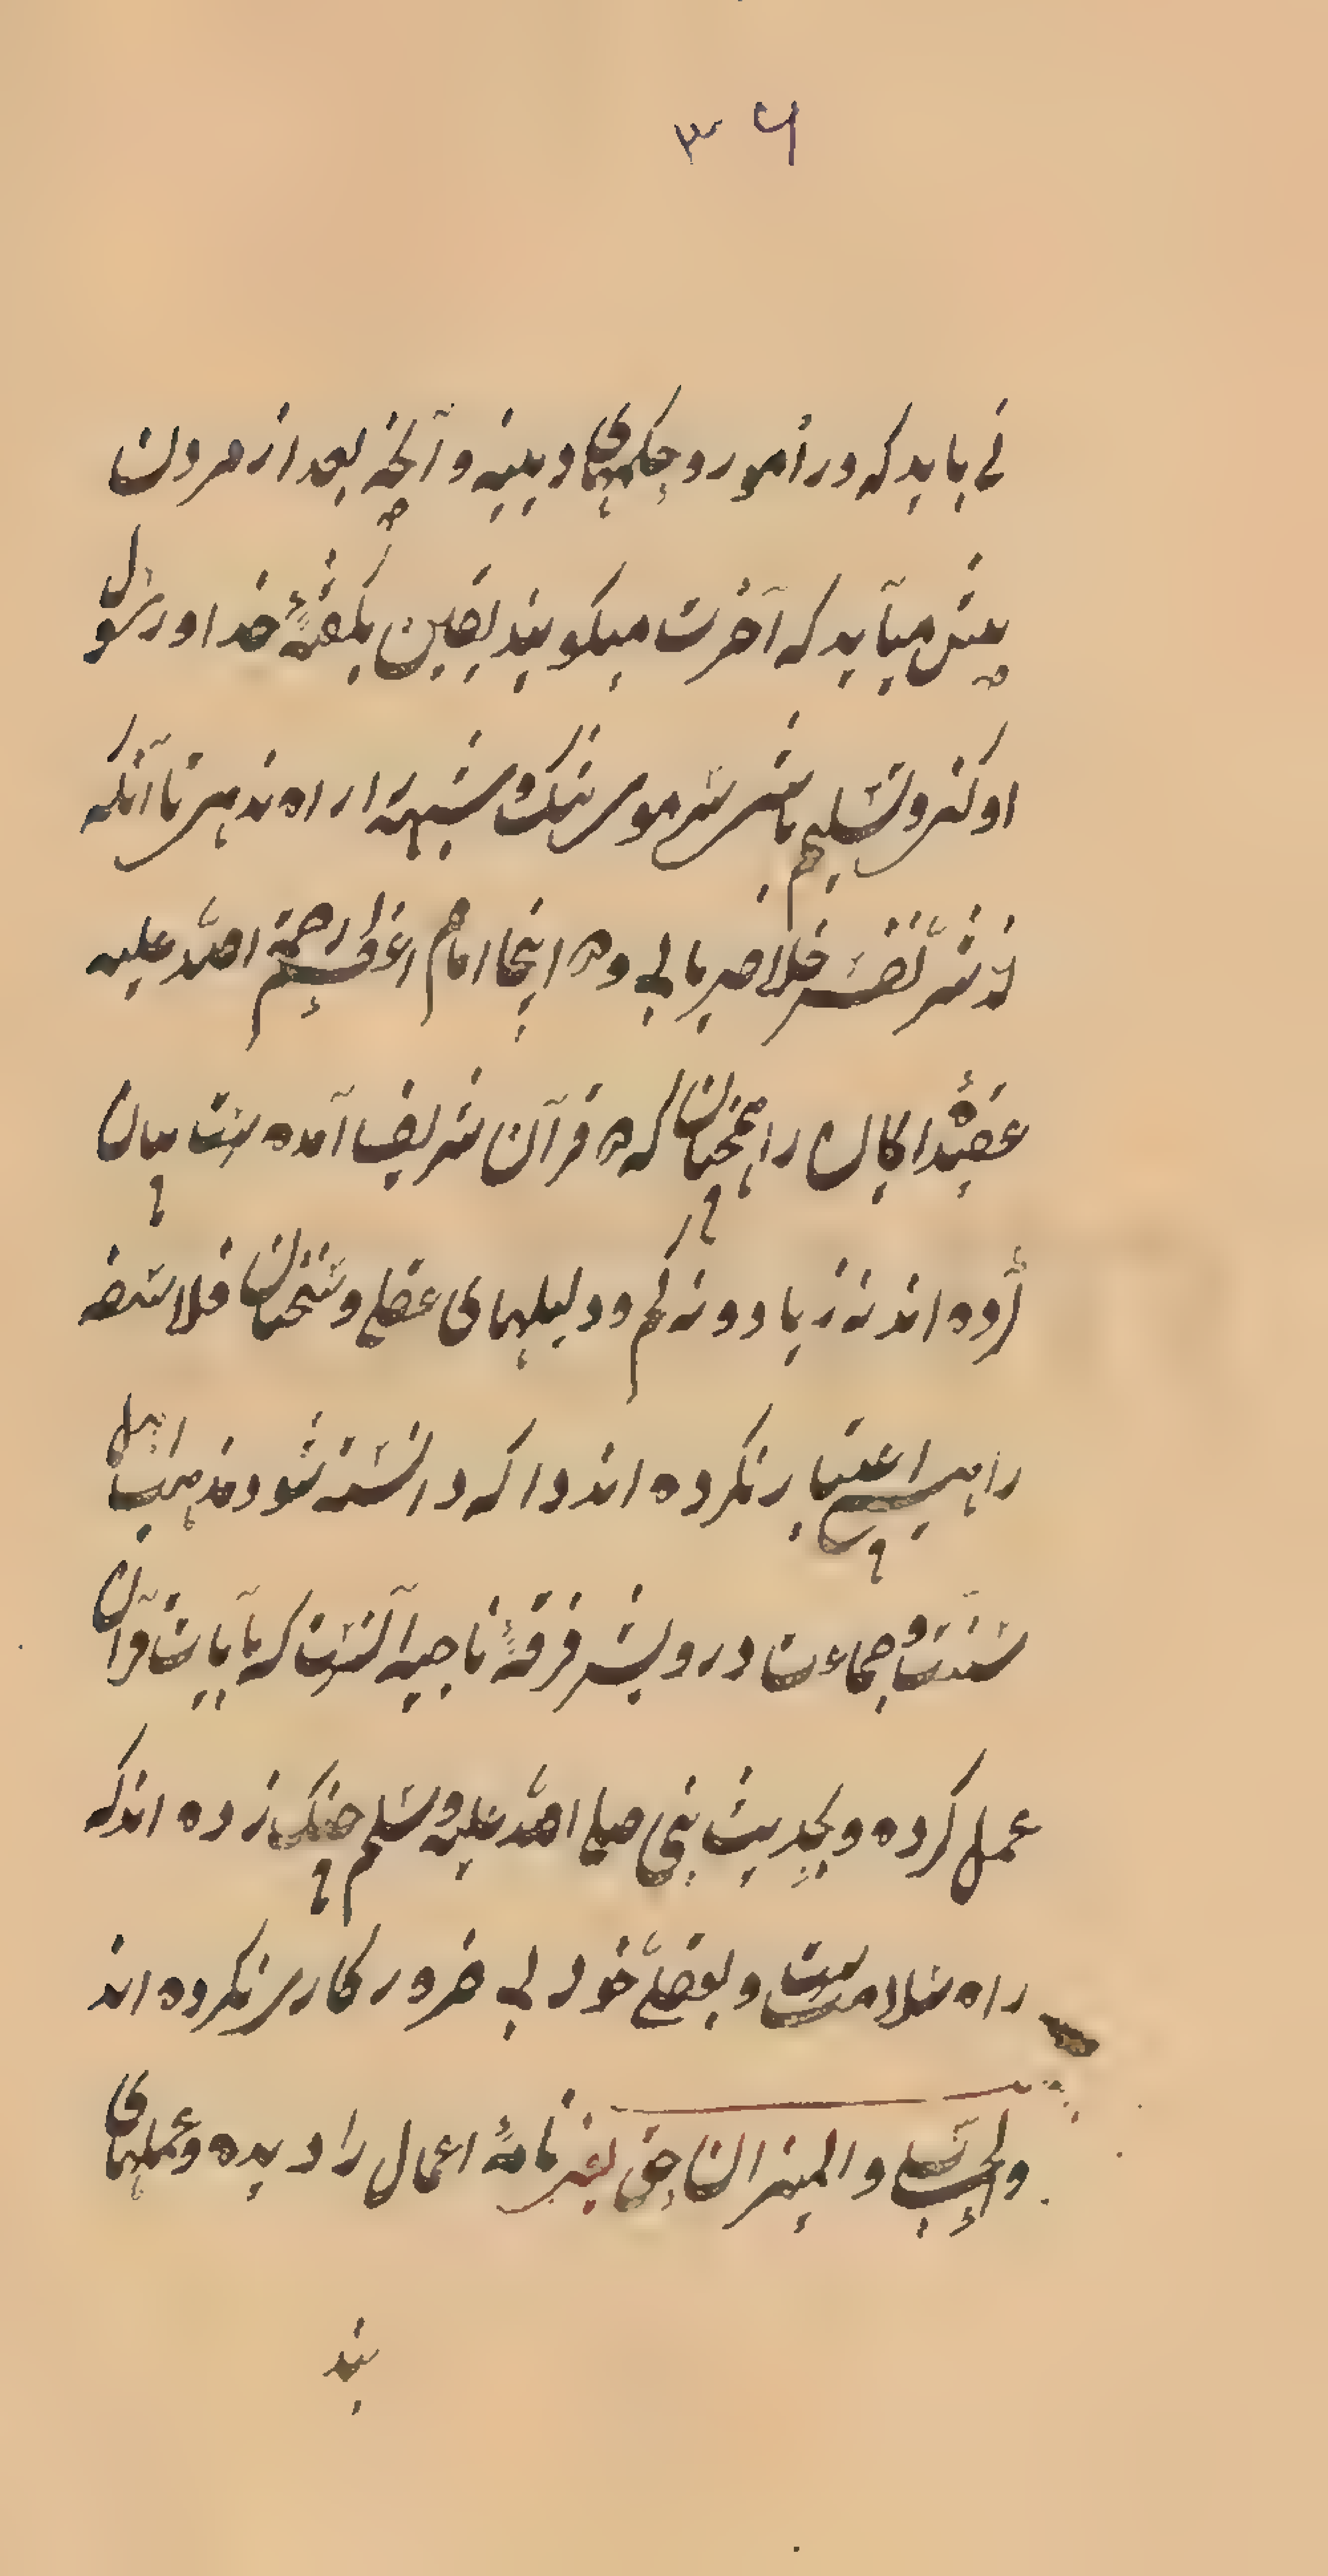 ۳۶
نی باید که در اُمور و حکمهای دینیه و آنچه بعد از مردن
پیش میآید که آخرت میگویند یقین بگفتهٔ خدا و رسول
او کنی و تسلیم باشی سر موی شک و شبهه را راه ندهی تا آنکه
از شرّ نفس خلاصی یابی و در اینجا امام اعظم رحمة الله علیه
عقیدهٔ ایمان را همچنان که در قرآن شریف آمده ست بیان
کرده اند نه زیاد و نه کم و دلیلهای عقلی و سخنان فلاسفه
را هیچ اعتبار نکرده اند و اکه دانسته شود مذهب اهل
سنّت و جماعت در رویش فرقهٔ ناجیه آنست که بآیات قرآن
عمل کرده و بحدیث نبی صلی الله علیه وسلم چنگ زده اند که
راه سلامت ست و بعقل خود بی ضرور کاری نکرده اند
والحساب والمیزان حق یعنی نامهٔ اعمال را دیده و عملهای
بند